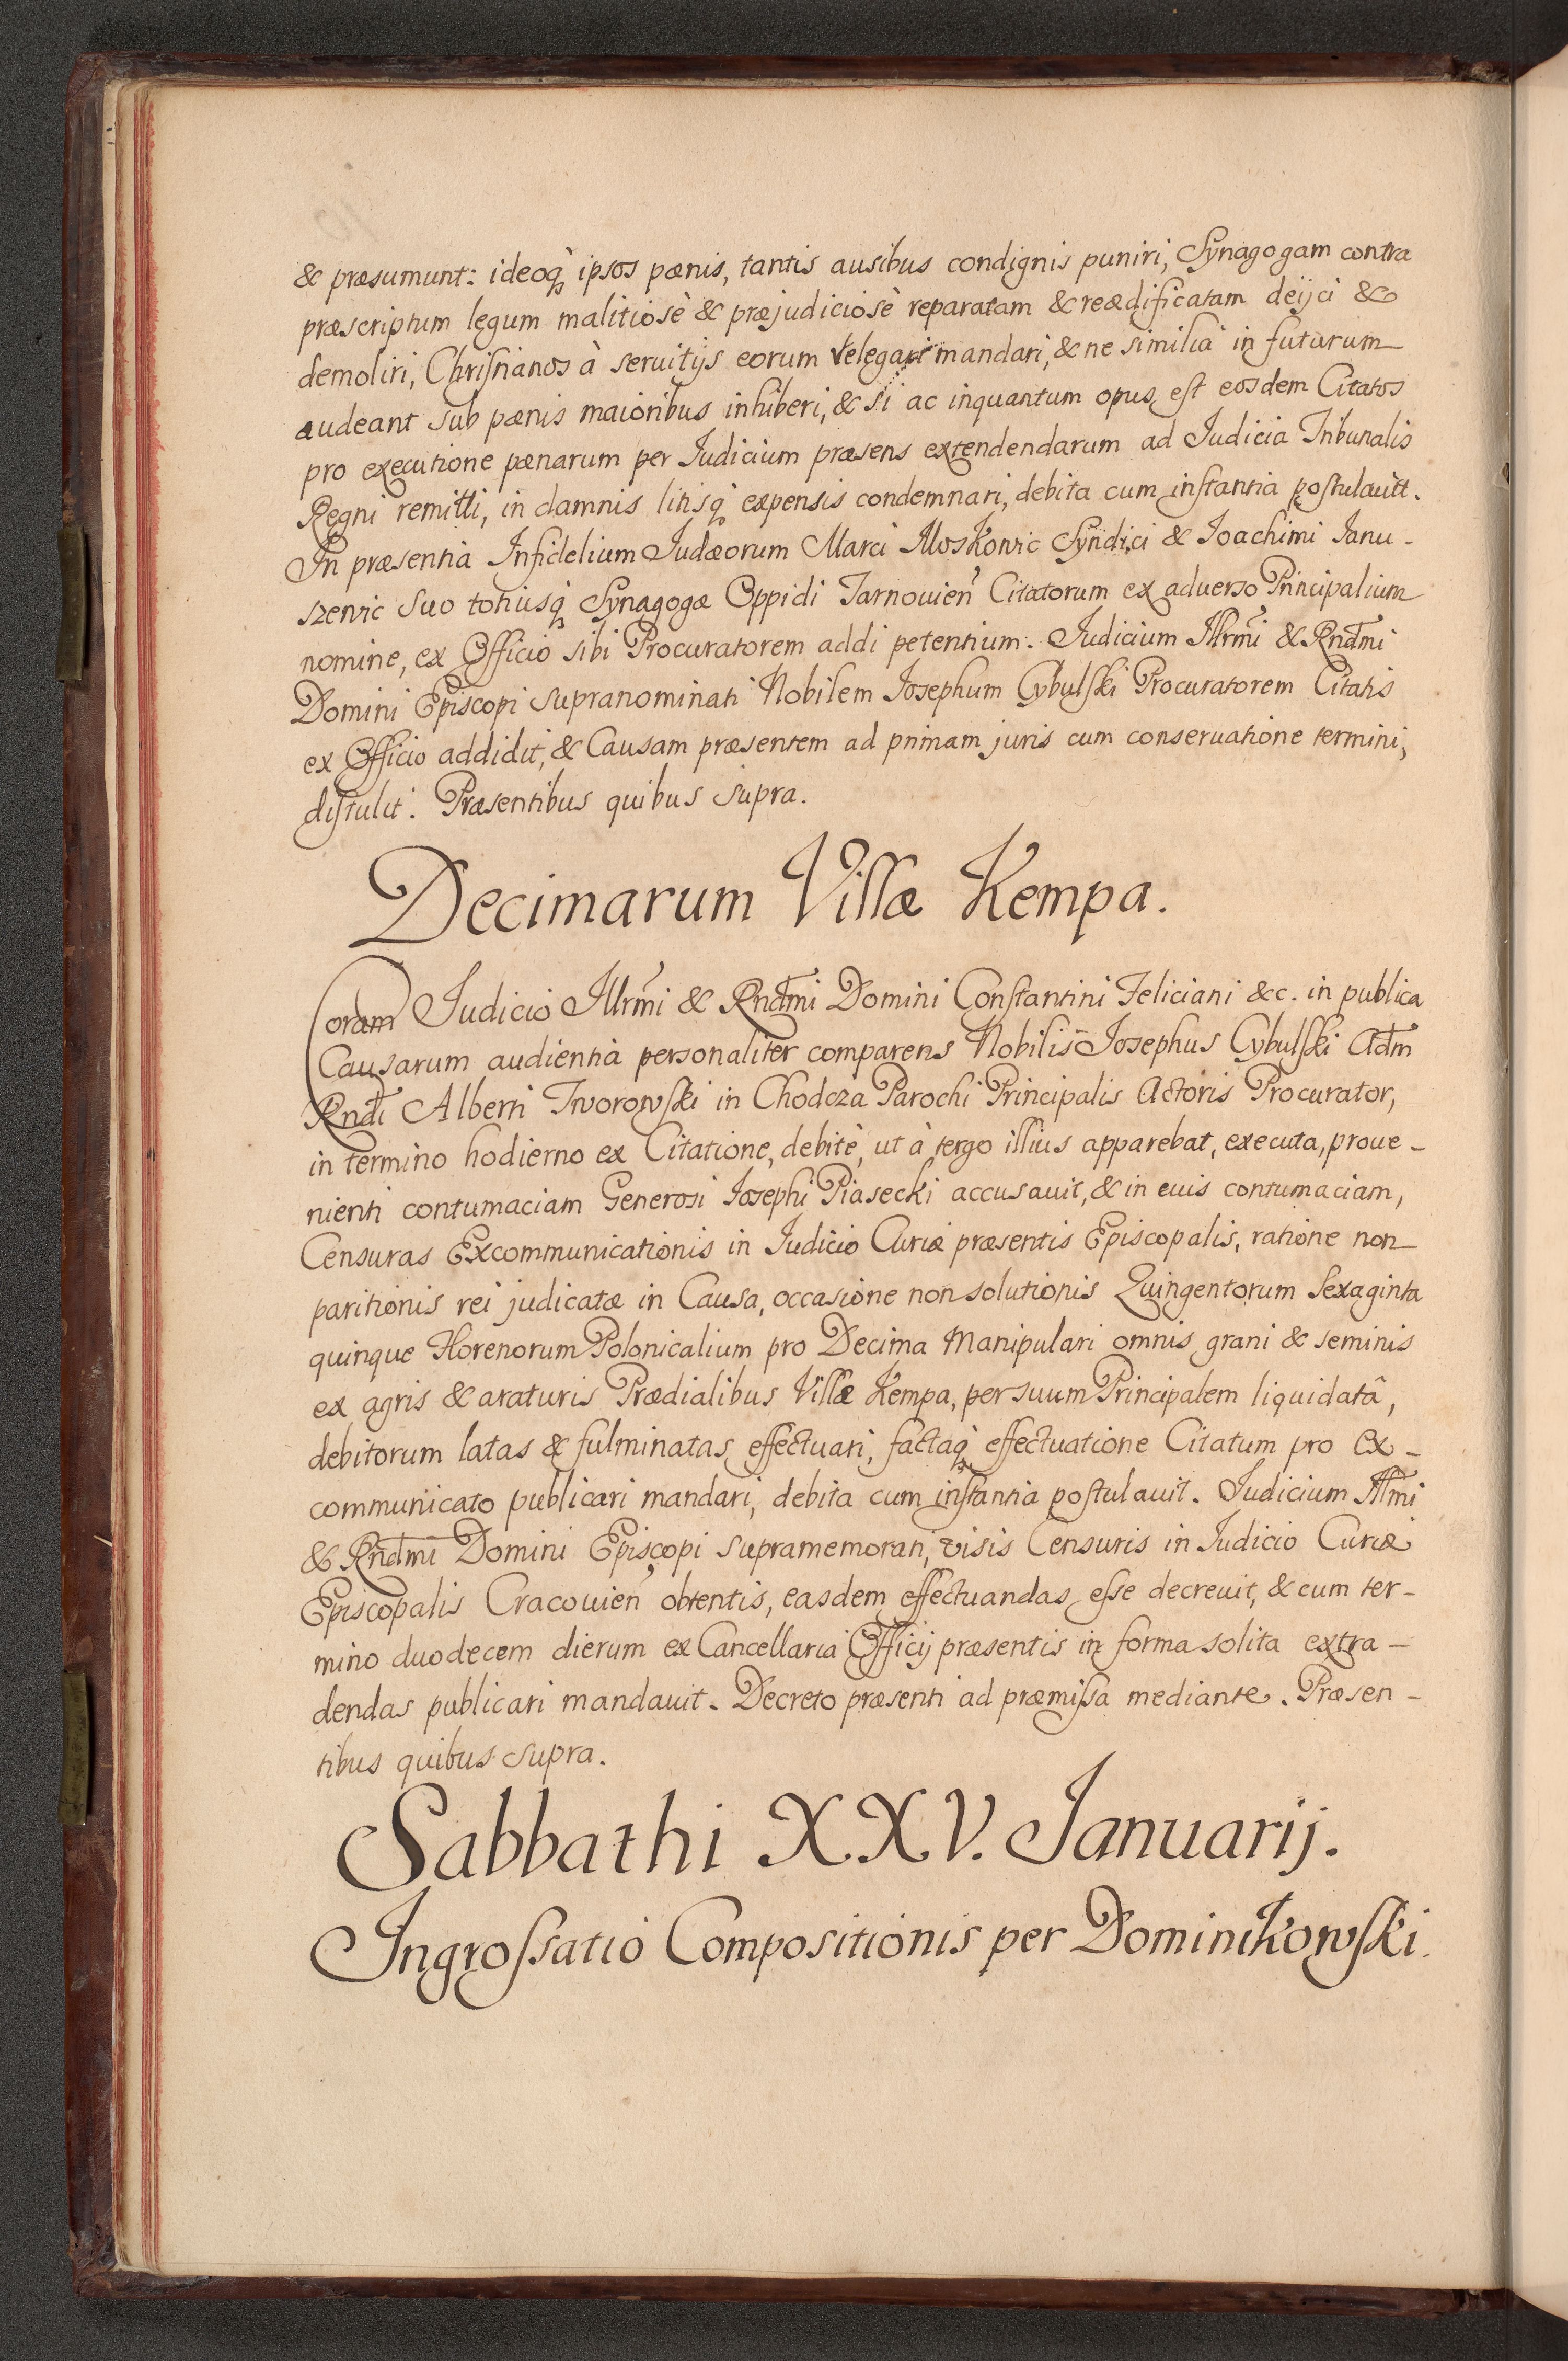 & præsumunt: ideoq̀ꝫ ipsos pœnis, tantis ausibus condignis puniri, Synagogam contra
præscriptum legum malitiosè & præjudiciosè reparatam & reædificatam deijci &
demoliri, Christianos à seruitijs eorum relegari mandari, & ne similia in futurum
audeant sub pœnis maioribus inhiberi, & si ac inquantum opus est eosdem Citatos
pro executione pœnarum per Iudicium præsens extendendarum ad Iudicia Tribunalis
Regni remitti, in damnis litisq̀ꝫ expensis condemnari, debita cum instantia postulauit.
In præsentia Infidelium Iudæorum Marci Moskowic Syndici & Ioachimi Ianu-
szewic suo totiusq̀ꝫ Synagogæ Oppidi Tarnouien̄ Citatorum ex aduerso Principalium
nomine, ex Officio sibi Procuratorem addi petentium. Iudicium Illrm̄i & Rnd̄mi
Domini Episcopi supranominati Nobilem Iosephum Cybulski Procuratorem Citatis
ex Officio addidit, & Causam præsentem ad primam juris cum conseruatione termini,
distulit. Præsentibus quibus supra.
Decimarum Villæ Kempa.
Coram Iudicio Illrm̄i & Rnd̄mi Domini Constantini Feliciani &c. in publica
Causarum audientia personaliter comparens Nobilis Iosephus Cybulski Adm̄
Rnd̄i Alberti Tworowski in Chodcza Parochi Principalis Actoris Procurator,
in termino hodierno ex Citatione, debitè, ut à tergo illius apparebat, executa, proue-
nienti contumaciam Generosi Iosephi Piasecki accusauit, & in euis contumaciam,
Censuras Excommunicationis in Iudicio Curiæ præsentis Episcopalis, ratione non
paritionis rei judicatæ in Causa, occasione non solutionis Quingentorum Sexaginta
quinque Florenorum Polonicalium pro Decima Manipulari omnis grani & seminis
ex agris & araturis Prædialibus Villæ Kempa, per suum Principalem liquidatâ,
debitorum latas & fulminatas effectuari, factaq̀ꝫ effectuatione Citatum pro Ex-
communicato publicari mandari, debita cum instantia postulauit. Iudicium Illm̄i
& Rnd̄mi Domini Episcopi supramemorati, visis Censuris in Iudicio Curiæ
Episcopalis Cracouien̄ obtentis, easdem effectuandas esse decreuit, & cum ter-
mino duodecem dierum ex Cancellaria Officij præsentis in forma solita extra-
dendas publicari mandauit. Decreto præsenti ad præmissa mediante. Præsen-
tibus quibus supra.
Sabbathi XXV. Ianuarij.
Ingrossatio Compositionis per Dominikowski.